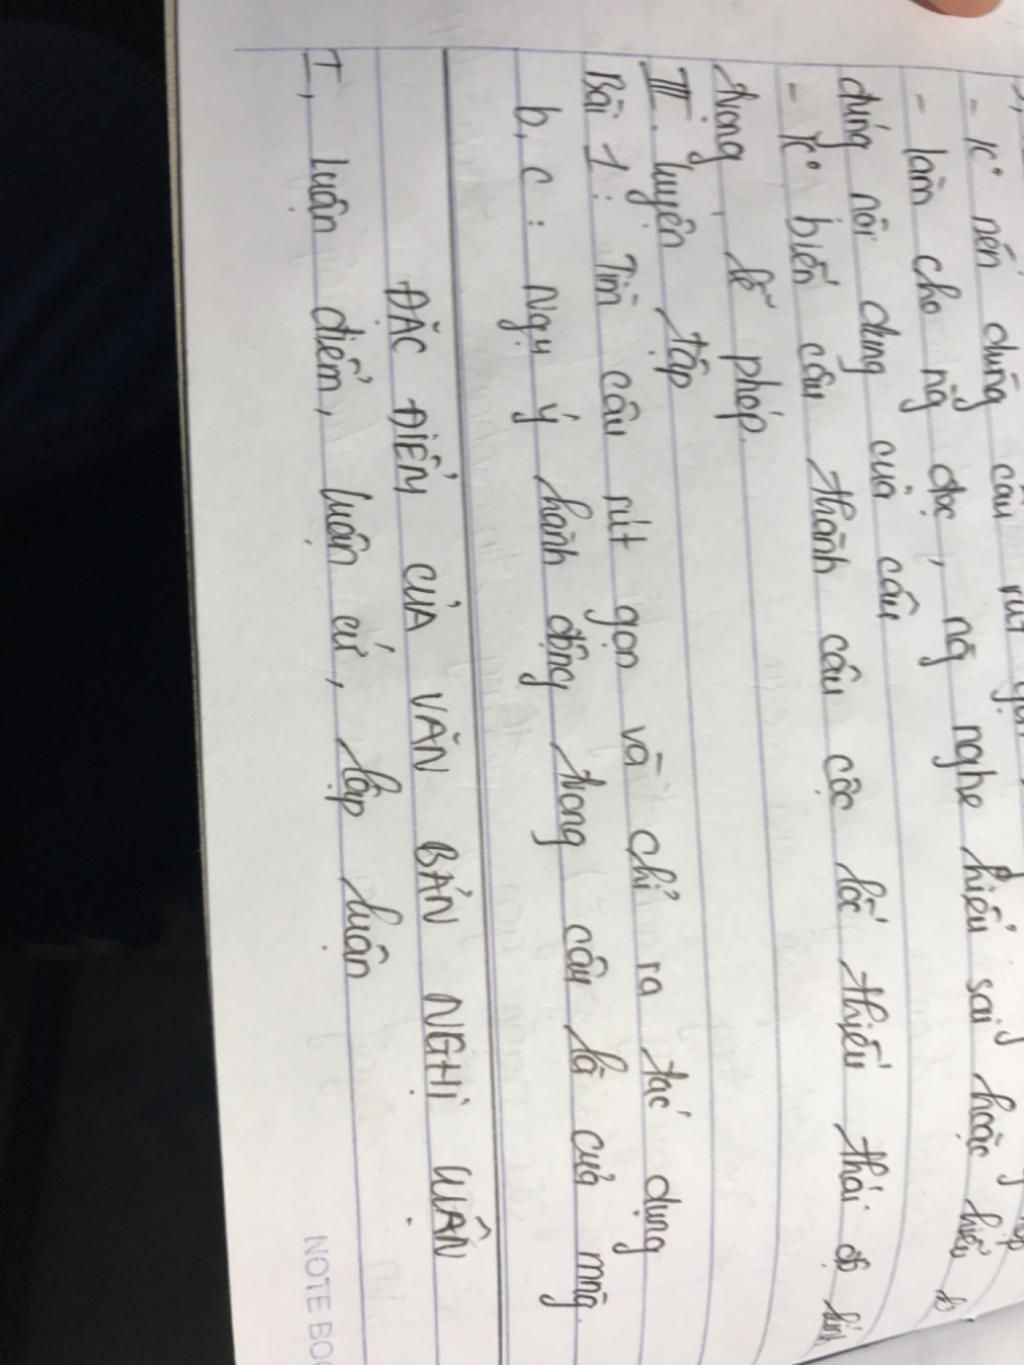 - k° nên dùng câu rút
- làm cho ng đọc, ng nghe hiểu sai hoặc hiểu k°
đúng nội dung của câu
- k° biến câu thành câu cộc lốc thiếu thái độ kính
trọng, lễ phép.
III. Luyện tập
Bài 1: Tìm câu rút gọn và chỉ ra tác dụng
b, c: Ngụ ý hành động trong câu là của mng.
ĐẶC ĐIỂM CỦA VĂN BẢN NGHỊ LUẬN
I, luận điểm, luận cứ, lập luận
NOTE BOO